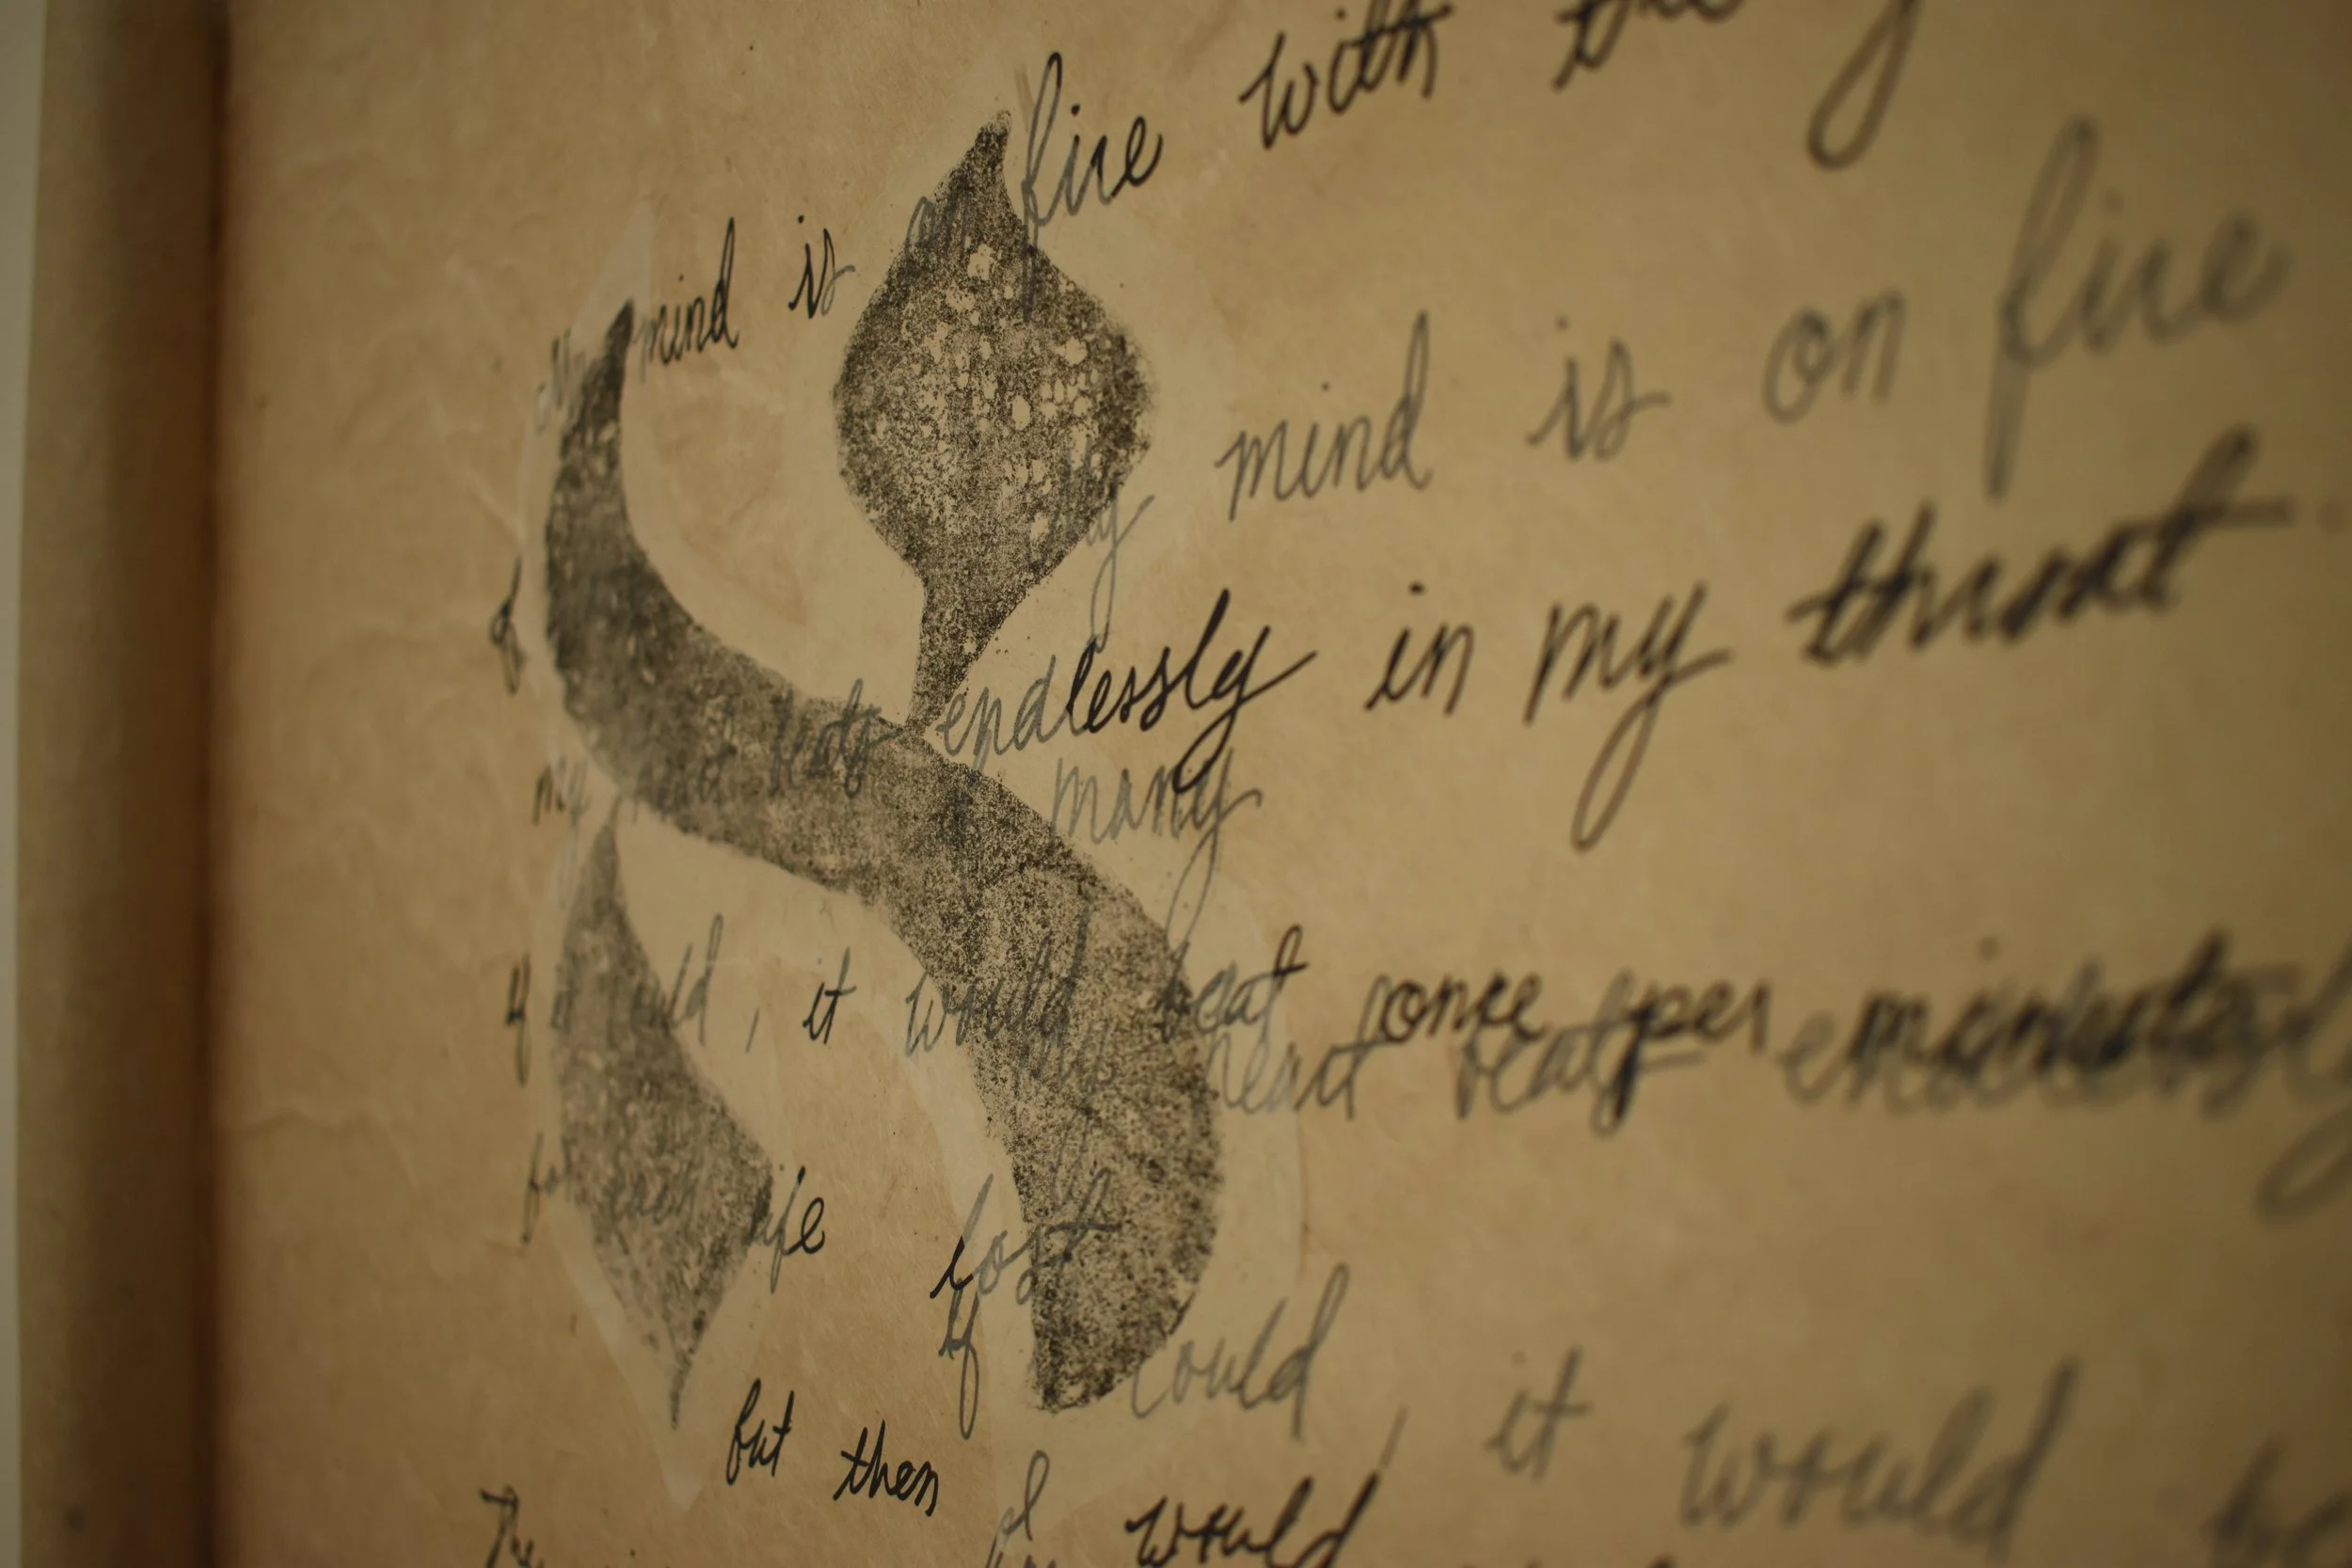 א
mind is on fire with the
my mind is on fire
of
my heart beats endlessly in my throat
many
if it could, it would beat once per minute
my heart beats endlessly
for each life lost
If could, it would
but then I would
The